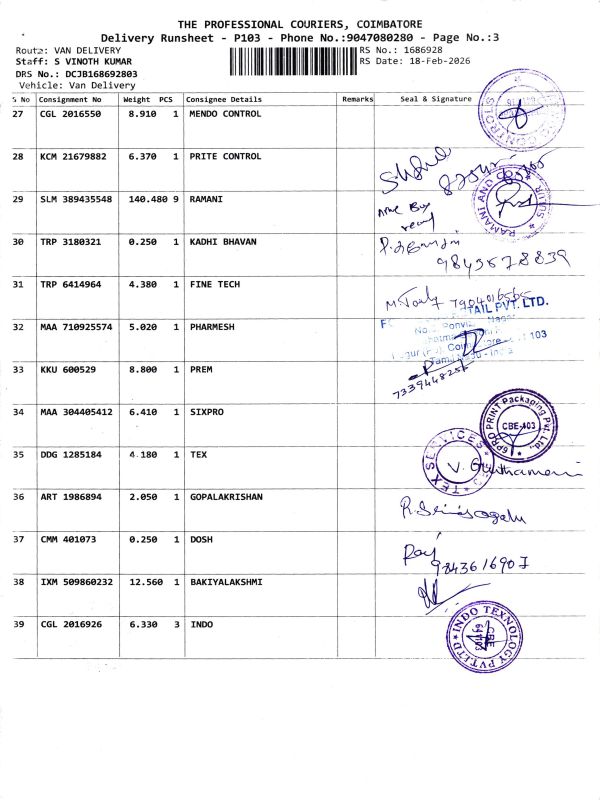 THE PROFESSIONAL COURIERS, COIMBATORE
Delivery Runsheet - P103 - Phone No.:9047080280 - Page No.:3
Route: VAN DELIVERY RS No.: 1686928
Staff: S VINOTH KUMAR RS Date: 18-Feb-2026
DRS No.: DCJB168692803
Vehicle: Van Delivery
S No Consignment No Weight PCS Consignee Details Remarks Seal & Signature
27 CGL 2016550 8.910 1 MENDO CONTROL
28 KCM 21679882 6.370 1 PRITE CONTROL
29 SLM 389435548 140.480 9 RAMANI
RAMANI AND
30 TRP 3180321 0.250 1 KADHI BHAVAN
9843678839
31 TRP 6414964 4.380 1 FINE TECH
7904016565
TAIL PVT. LTD.
32 MAA 710925574 5.020 1 PHARMESH
103
33 KKU 600529 8.800 1 PREM
34 MAA 304405412 6.410 1 SIXPRO
PRINT Packaging Pvt. Ltd.,
CBE-403
35 DDG 1285184 4.180 1 TEX
TEX SERVICES
36 ART 1986894 2.050 1 GOPALAKRISHAN
37 CMM 401073 0.250 1 DOSH
Raj
9843616907
38 IXM 509860232 12.560 1 BAKIYALAKSHMI
39 CGL 2016926 6.330 3 INDO
INDO TEXNOLOGY PVT.LTD
CBE